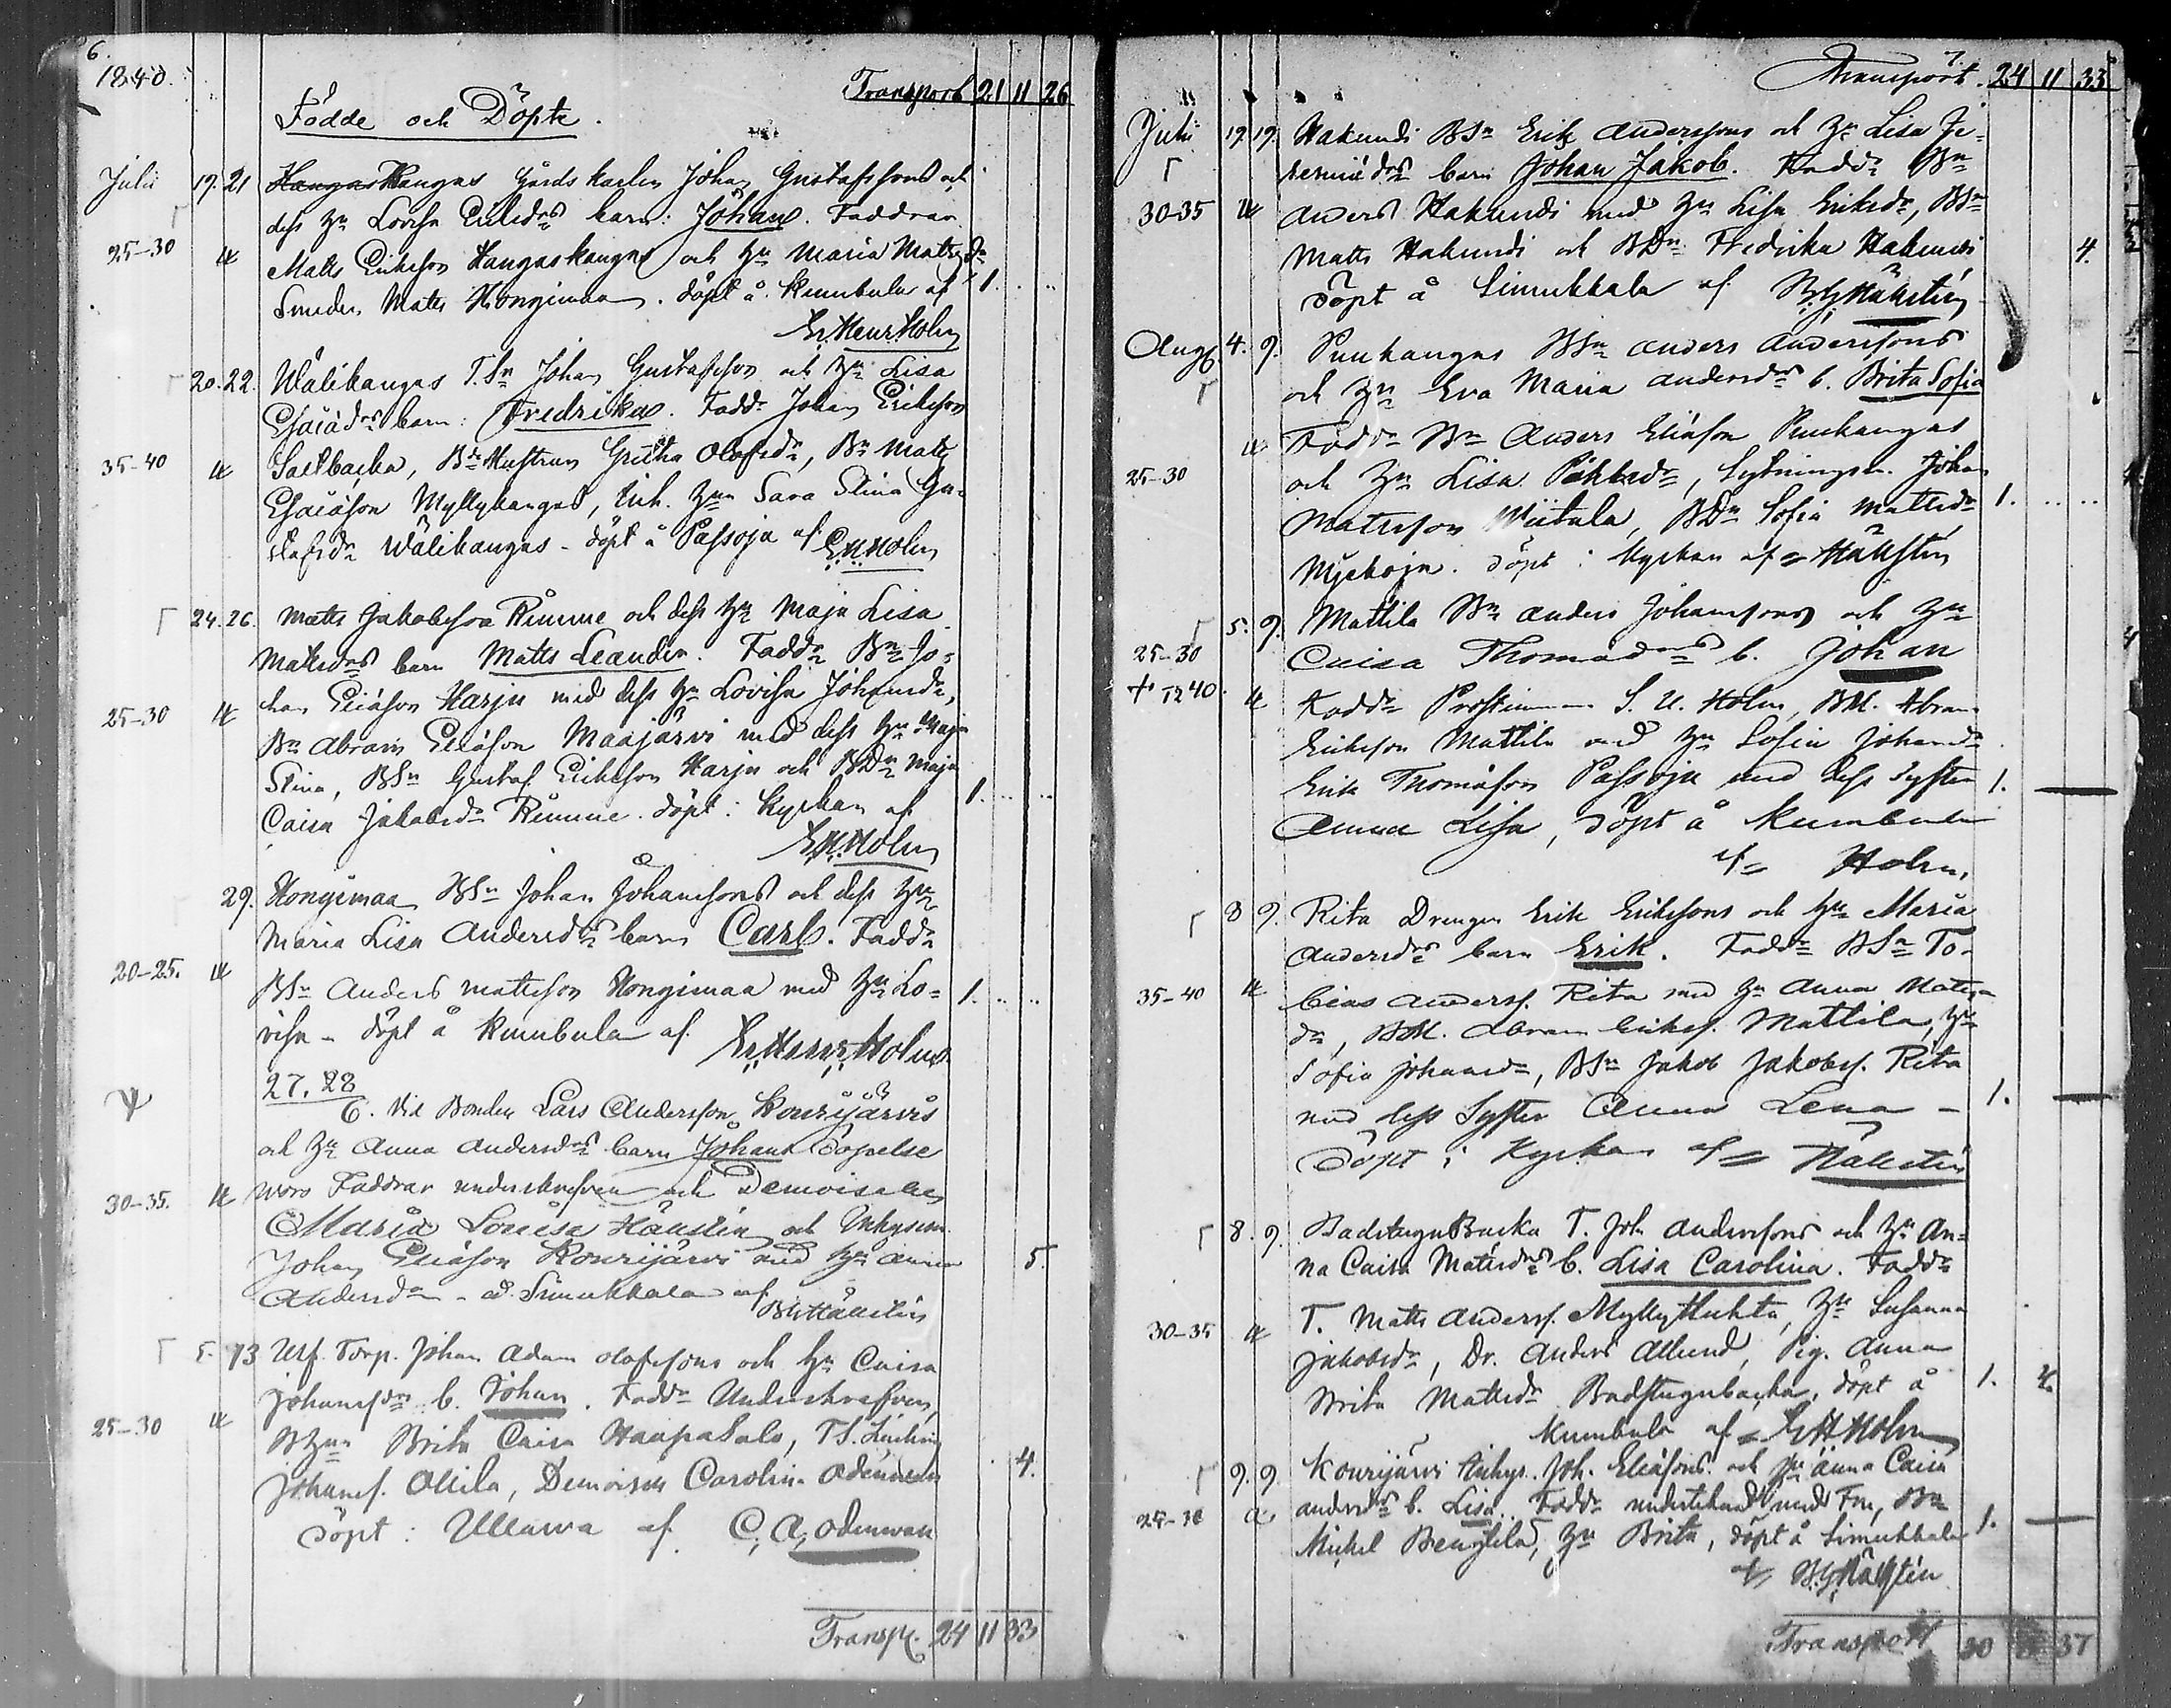 6.
1840.
Transport 21 11 26
Födde och Döpte.
Julii 19. 21 Hangas Kangas Gårds karlen Johan Gustafssons och
dess hu Lovisa Eriksdrs barn: Johan. Faddrar
25-30 Matts Eriksson Hangaskangas och hu Maria Mattsdr
Smeden Matts Hongimaa. döpt å Kumbula af 1.
Er. Henr. Holm
20. 22. Wälikangas T.Sn Johan Gustafsson och hu Lisa
Esaiædrs barn: Fredrika. Fadd. Johan Eriksson
35-40 Saltbacka, Bde Hustrun Greta Olofsdr, Bn Matts
Esaiæson Myllykangas, Enk. hu Sara Stina Gu-
stafsdr Wälikangas - döpt å Passoja af E. H. Holm
24. 26. Matts Jakobsson Rimme och dess hu Maja Lisa
Mattsdrs barn Matts Leander. Faddr Bn Jo-
han Eliæson Harju med dess hu Lovisa Johansdr,
25-30 Bn Abram Eliæson Maajärvi med dess hu Maja
Stina, BSn Gustaf Eriksson Harju och BDn Maja
Caisa Jakobsdr Rimme. döpt i Kyrkan af 1.
E. H. Holm
29. Hongimaa BSn Johan Johanssons och dess hu
Maria Lisa Andersdrs barn Carl. Faddr
20-25. BSn Anders Mattsson Hongimaa med hu Lo- 1.
visa - döpt å Kumbula af Er. Henr. Holm
27. 28
6. Vid Bonden Lars Andersson Kourijärvis
och hu Anna Andersdrs barn Johans döpelse
30-35. woro Faddrar underskrefven och Demoisellen
Maria Lovisa Hällsten och Inhysesm.
Johan Eliæson Kourijärvi med hu Anna 5.
Andersdr - å Simukkala af
B G Hällstén
5. 13 Utf. Torp. Johan Adam Olofssons och hu Caisa
Johansdrs b. Johan. Faddr Underskrefven,
25-30 Bhu Brita Caisa Haapasalo, TS.
Johansf. Ollila, Demoisell Carolina Odenwan 4.
döpt i Ullawa af C. A. Odenwall
Transp. 24 11 33
7.
Transport. 24 11 33
Julii 19. 19. Hakundi BSn Erik Anderssons och hu Lisa Je-
remiædrs barn Johan Jakob. Faddr Bn
30-35 Anders Hakundi med hu Lisa Eriksdr, BSn
Matts Hakundi och BDn Fredrika Hakundi 4.
döpt å Simukkala af B. G. Hällstén
Aug. 4. 9. Punkangas BSn Anders Anderssons
och hu Eva Maria Andersdrs b. Brita Sofia
Faddr Bn Anders Eliæson Punkangas
25-30 och hu Lisa, Sytningsm. Johan
Mattsson Wiitala, BDn Sofia Mattsdr 1.
Myckoja. döpt i Kyrkan af Hällstén
5. 9. Mattila Bn Anders Johanssons och hu
25-30 Caisa Thomædrs b. Johan
Faddr Prostinnan S. U. Holm, BM. Abram
Eriksson Mattila med hu Sofia Johansdr
Erik Thomæson Passoja med dess syster 1.
Anna Lisa, döpt å Kumbula
af Holm.
8 9. Rita Drengen Erik Erikssons och hu Maria
Andersdrs barn Erik. Faddr BSn To-
35-40 bias Anderss. Rita med hu Anna Matts-
dr, BM. Abram Erikss. Mattila, hu
Sofia Johansdr, BSn Jakob Jakobss. Rita
med dess Syster Anna Lena - 1.
Döpt i Kyrkan af Hällstén
8. 9. Badstugubacka T. Joh. Anderssons och hu An-
na Caisa Mattsdrs b. Lisa Carolina. Faddr
30-35 T. Matts Anderss. Myllyhuhta, hu Susanna
Jakobsdr, Dr. Anders Ahlund, Pig. Anna
Brita Mattsdr Badstugubacka, döpt å 1. 4.
Kumbula af E H Holm
9. 9. Kourijärvi Inhys. Joh. Eliæsons och hu Anna Caisa
andersdrs b. Lisa. Faddr undertecknad med Fru, Bn
Michel Bengtila, hu Brita, döpt å Simukkala 1.
af B. G. Hällstén
Transport 30 37